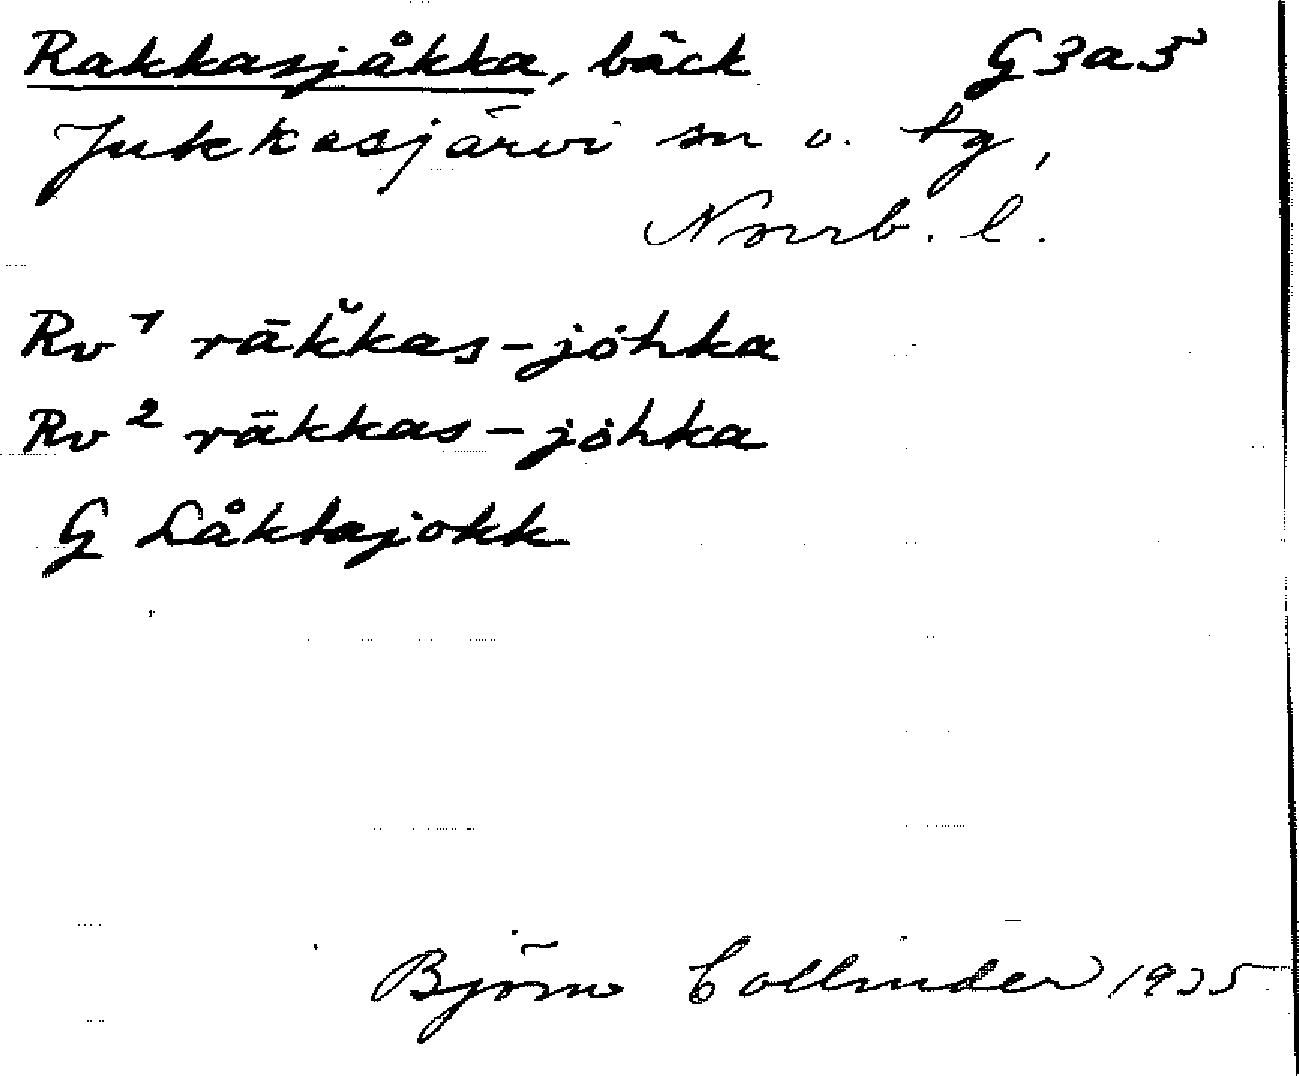 Rakkasjåkka, bäck G3a5
Jukkasjärvi sn o. tg,
Norrb. l.
Rv¹ rāk̆kas-jȯhka
Rv² rākkas-jȯhka
G Låktajokk
Björn Collinder 1935